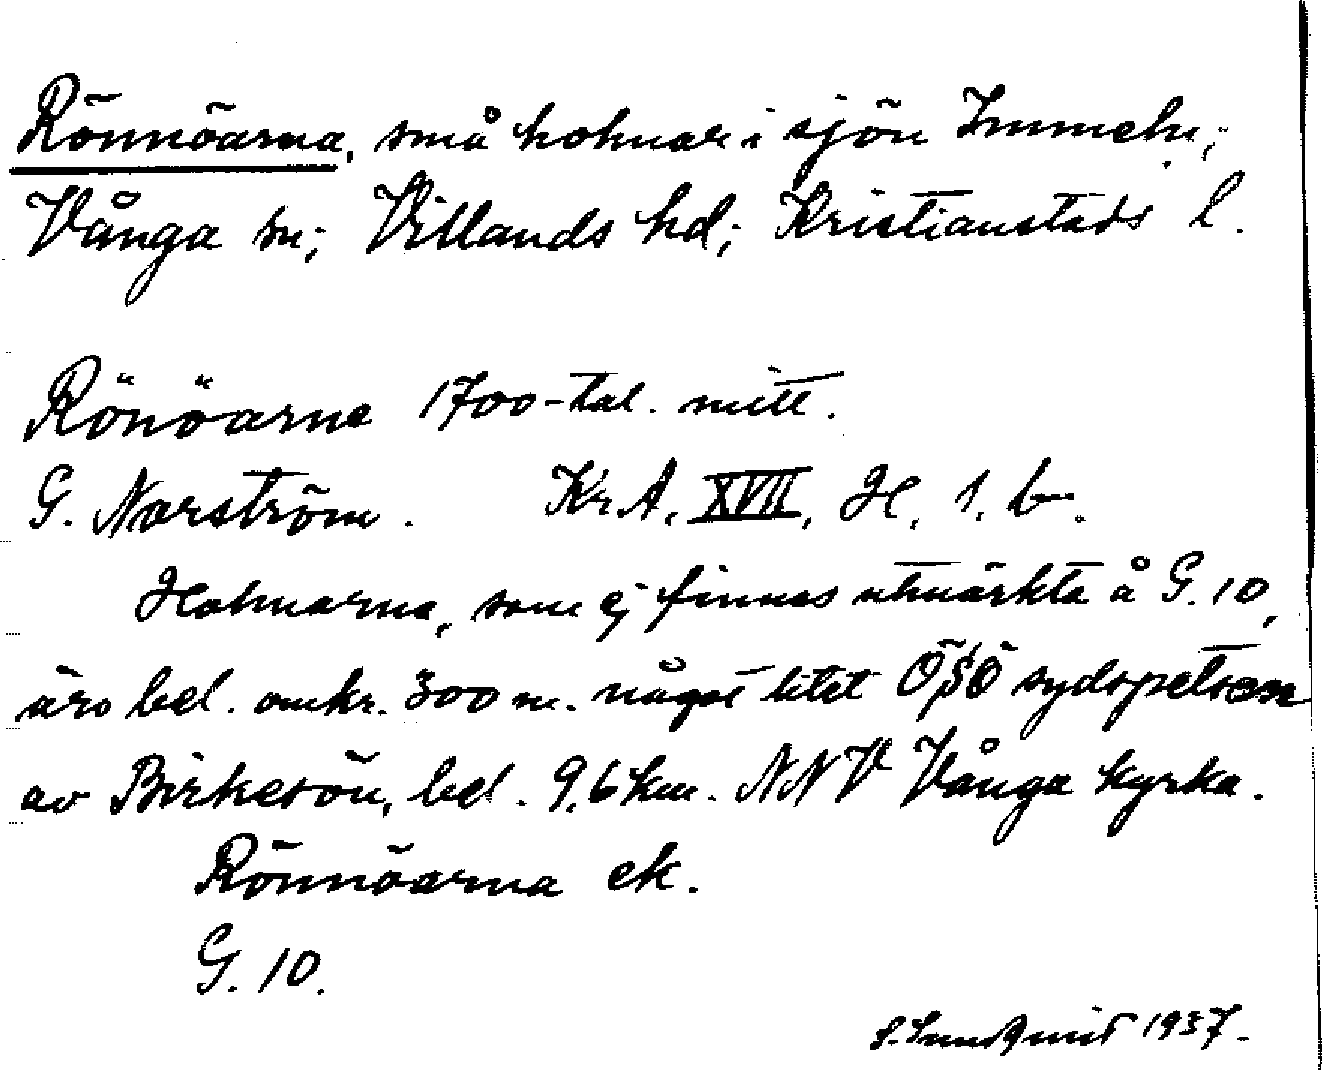 Rönnöarna, små holmar i sjön Immeln;
Vånga sn; Villands hd; Kristianstads l.
Rönöarne 1700-tal. mitt.
G. Norström. Kr. A. XVII, H. 1. b.
Holmarna, som ej finnas utmärkta å G. 10,
äro bel. omkr. 300 m. något litet ÖSÖ sydspetsen
av Birkesön, bel. 9,6 km. NNV Vånga kyrka.
Rönnöarna ek.
G. 10.
S. Sundqvist 1937.